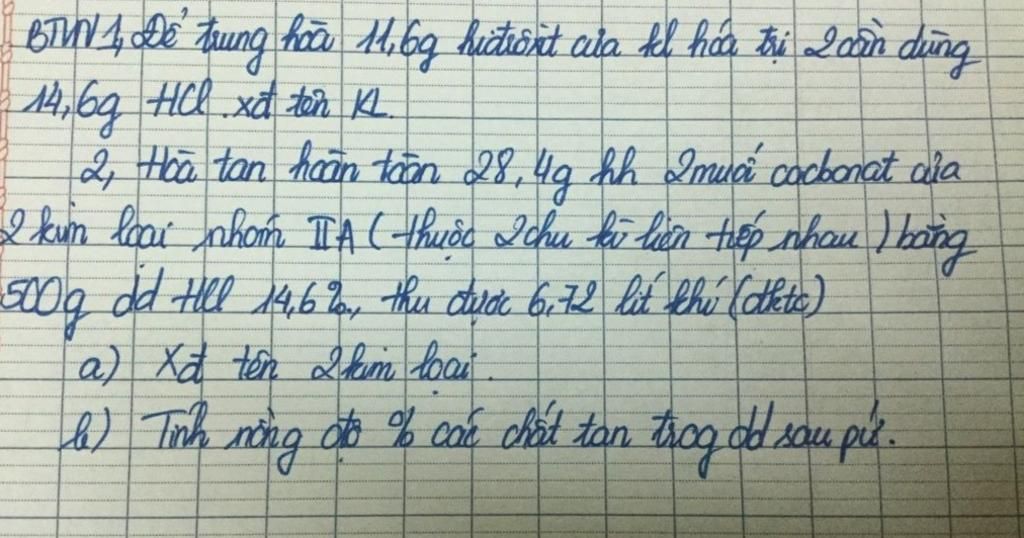 BTVN 1, Để trung hoà 11,6g hiđroxit của kl hóa trị 2 cần dùng
14,6g HCl. xđ tên KL.
2, Hoà tan hoàn toàn 28,4g hh 2 muối cacbonat của
2 kim loại nhóm IIA (thuộc 2 chu kì liên tiếp nhau) bằng
500g dd HCl 14,6%, thu được 6,72 lít khí (đktc)
a) Xđ tên 2 kim loại.
b) Tính nồng độ % các chất tan trog dd sau pứ.